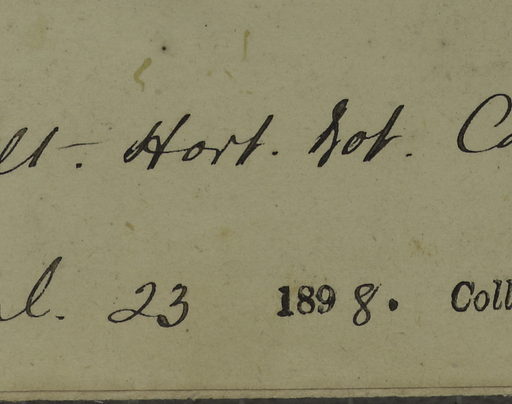 lt. Hort. Bot. Ca
l. 23 1898. Coll